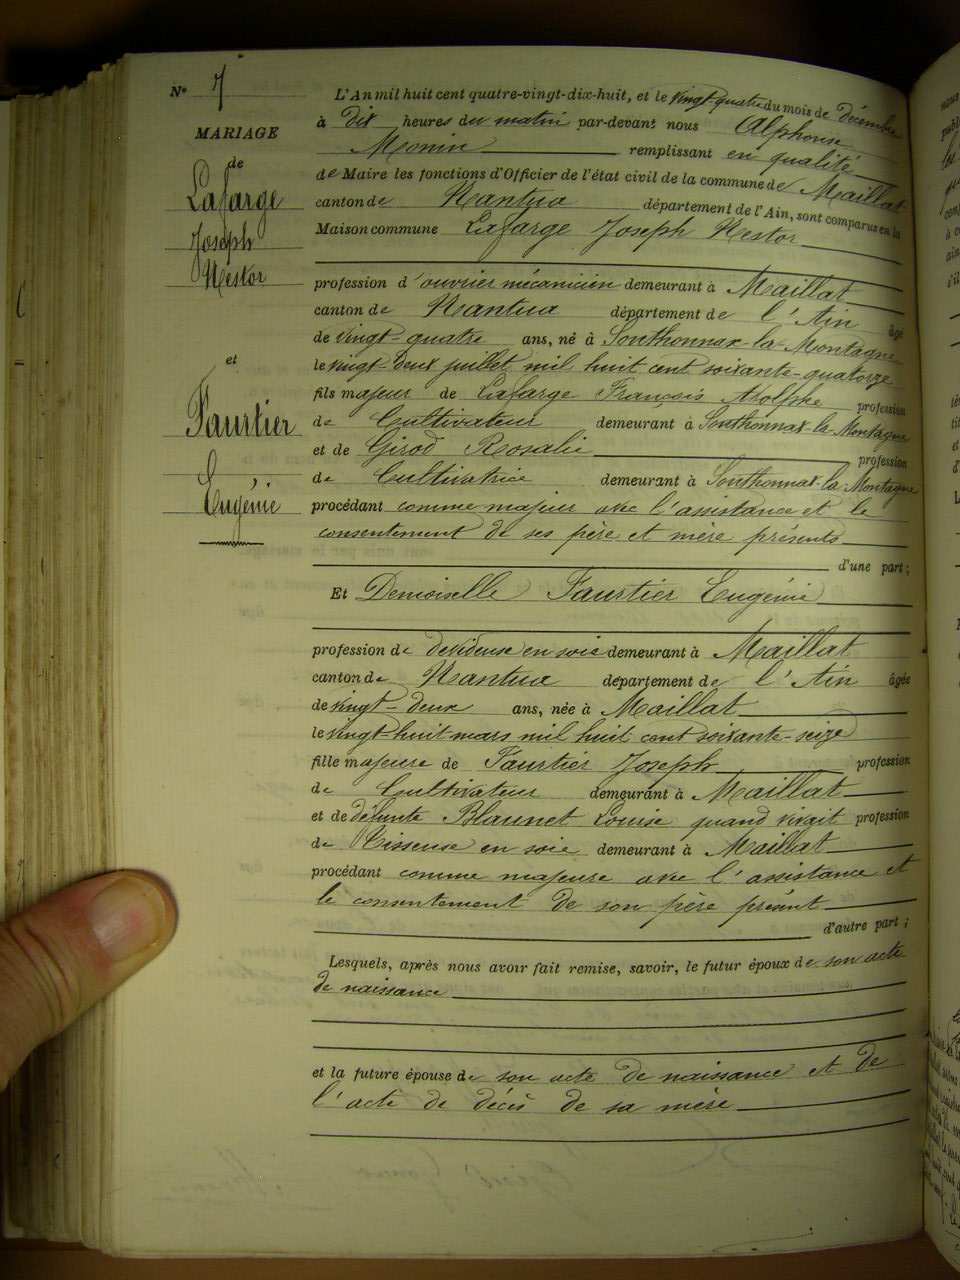 N° 7
MARIAGE
de
Lafarge
Joseph
Nestor
et
Faurtier
Eugénie
L'An mil huit cent quatre-vingt-dix-huit, et le vingt-quatre du mois de décembre
à dix heures du matin par-devant nous Alphonse
Monin remplissant en qualité
de Maire les fonctions d'Officier de l'état civil de la commune de Maillat
canton de Nantua département de l'Ain, sont comparus en la
Maison commune Lafarge Joseph Nestor
profession d'ouvrier mécanicien demeurant à Maillat
canton de Nantua département de l'Ain âgé
de vingt-quatre ans, né à Sonthonnax-la-Montagne
le vingt-deux juillet mil huit cent soixante-quatorze
fils majeur de Lafarge François Adolphe profession
de Cultivateur demeurant à Sonthonnax-la-Montagne
et de Girod Rosalie profession
de Cultivatrice demeurant à Sonthonnax-la-Montagne
procédant comme majeur avec l'assistance et le
consentement de ses père et mère présents
d'une part ;
Et Demoiselle Faurtier Eugénie
profession de dévideuse en soie demeurant à Maillat
canton de Nantua département de l'Ain âgée
de vingt-deux ans, née à Maillat
le vingt huit mars mil huit cent soixante-seize
fille majeure de Faurtier Joseph profession
de Cultivateur demeurant à Maillat
et de défunte Blaunet Louise quand vivait profession
de Tisseuse en soie demeurant à Maillat
procédant comme majeure avec l'assistance et
le consentement de son père présent
d'autre part ;
Lesquels, après nous avoir fait remise, savoir, le futur époux de son acte
de naissance
et la future épouse de son acte de naissance et de
l'acte de décès de sa mère